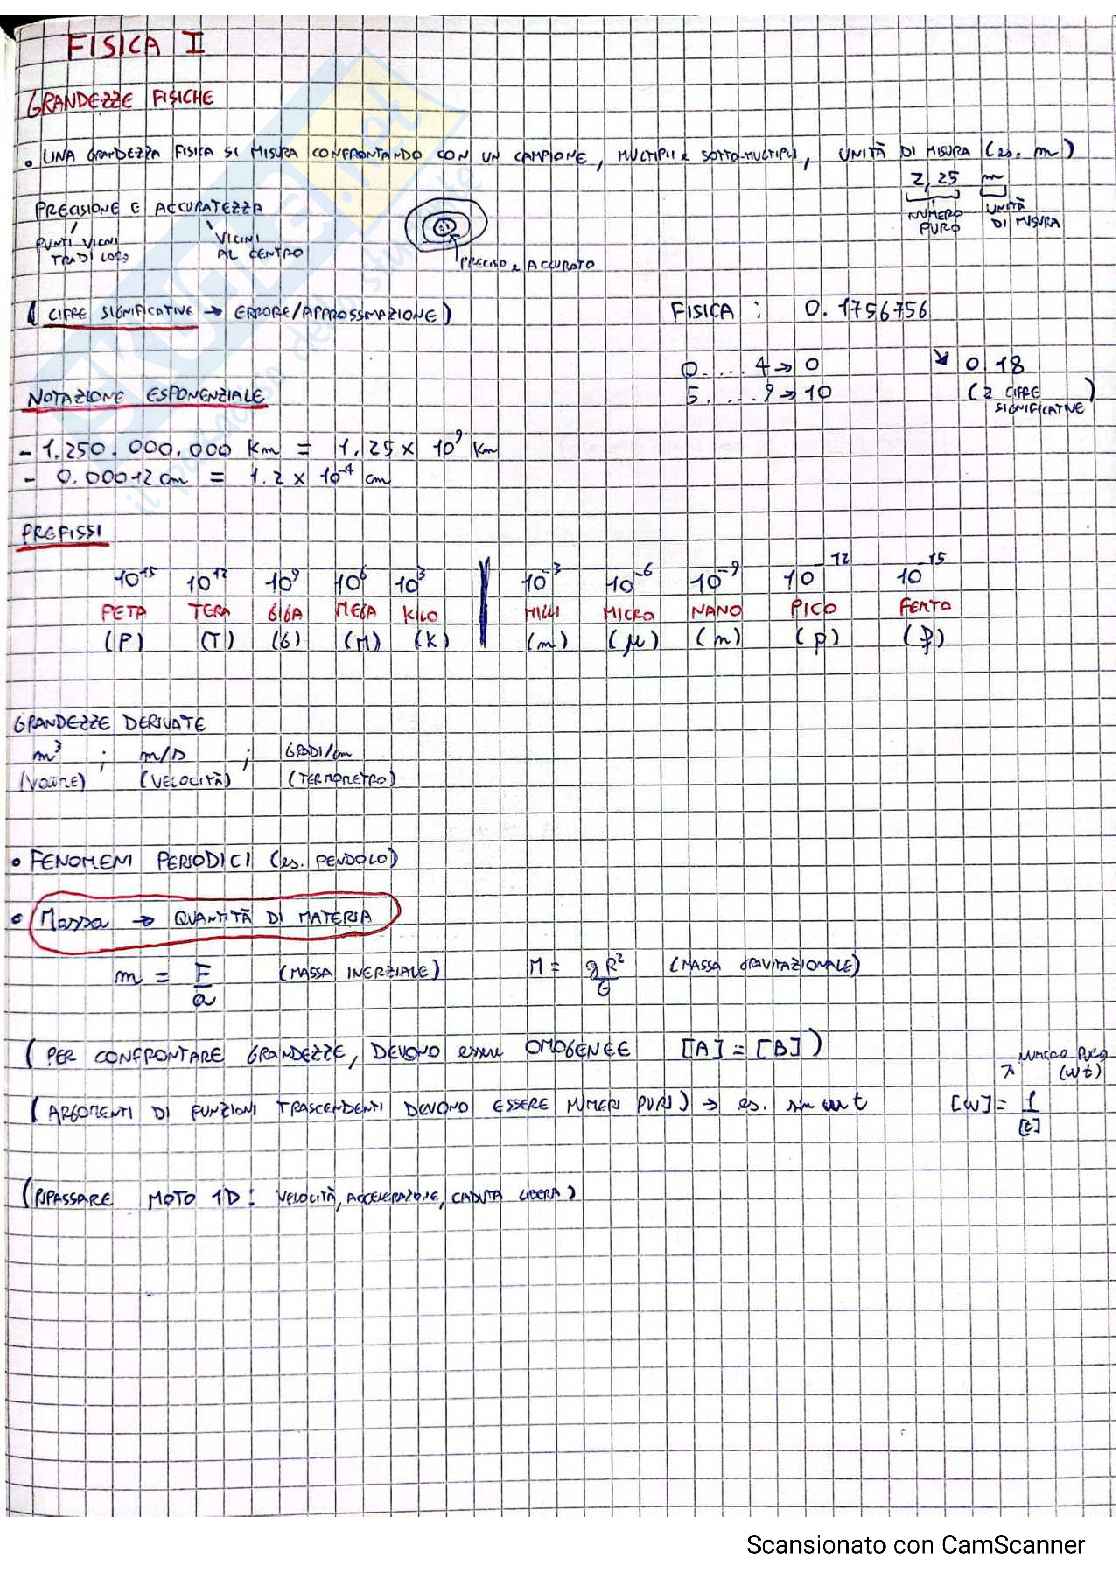 FISICA I
GRANDEZZE FISICHE
• UNA GRANDEZZA FISICA SI MISURA CONFRONTANDO CON UN CAMPIONE, MULTIPLI E SOTTO-MULTIPLI, UNITÀ DI MISURA (es. m)
2,25 m
NUMERO PURO UNITÀ DI MISURA
PRECISIONE E ACCURATEZZA
PUNTI VICINI TRA DI LORO
VICINI AL CENTRO
PRECISO E ACCURATO
(CIFRE SIGNIFICATIVE → ERRORE/APPROSSIMAZIONE)
FISICA : 0.1756756
0....4 → 0
5....9 → 10
↘ 0,18
(2 CIFRE SIGNIFICATIVE)
NOTAZIONE ESPONENZIALE
- 1.250.000.000 Km = 1,25 × 10⁹ Km
- 0.00012 cm = 1.2 × 10⁻⁴ cm
PREFISSI
10¹⁵ 10¹² 10⁹ 10⁶ 10³ | 10⁻³ 10⁻⁶ 10⁻⁹ 10⁻¹² 10⁻¹⁵
PETA TERA GIGA MEGA KILO | MILLI MICRO NANO PICO FEMTO
(P) (T) (G) (M) (K) | (m) (μ) (n) (p) (f)
GRANDEZZE DERIVATE
m³ ; m/s ; GRADI/cm
(VOLUME) (VELOCITÀ) (TERMOMETRO)
• FENOMENI PERIODICI (es. PENDOLO)
• Massa → QUANTITÀ DI MATERIA
m = F/a (MASSA INERZIALE) M = gR²/G (MASSA GRAVITAZIONALE)
(PER CONFRONTARE GRANDEZZE, DEVONO essere OMOGENEE [A] = [B])
NUMERO PURO
(ωt)
(ARGOMENTI DI FUNZIONI TRASCENDENTI DEVONO ESSERE NUMERI PURI) → es. sin ωt [ω] = 1/[t]
(RIPASSARE MOTO 1D: VELOCITÀ, ACCELERAZIONE, CADUTA LIBERA)
Scansionato con CamScanner